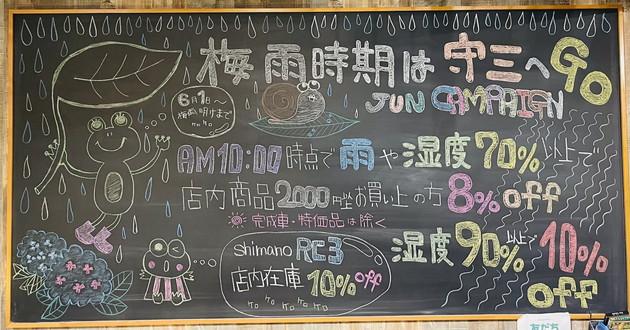 梅雨時期は守三へGo
JUN CAMPAIGN
6月1日〜
梅雨明けまで
ケロケロ
AM10:00時点で雨や湿度70%以上で
店内商品2000円以上お買い上の方8%off
完成車・特価品は除く
湿度90%以上で10%off
shimano RC3
店内在庫10%off
ケロ ケロ ケロ ケロ
友だち